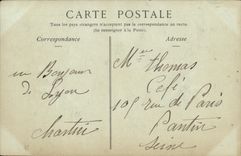 CARTE POSTALE
Tous les pays étrangers n'acceptent pas la correspondance au recto
(Se renseigner à la Poste).
Correspondance
Adresse
un Bonjour
de Lyon
Mr Thomas
Café
105 rue de Paris
Pantin
Seine